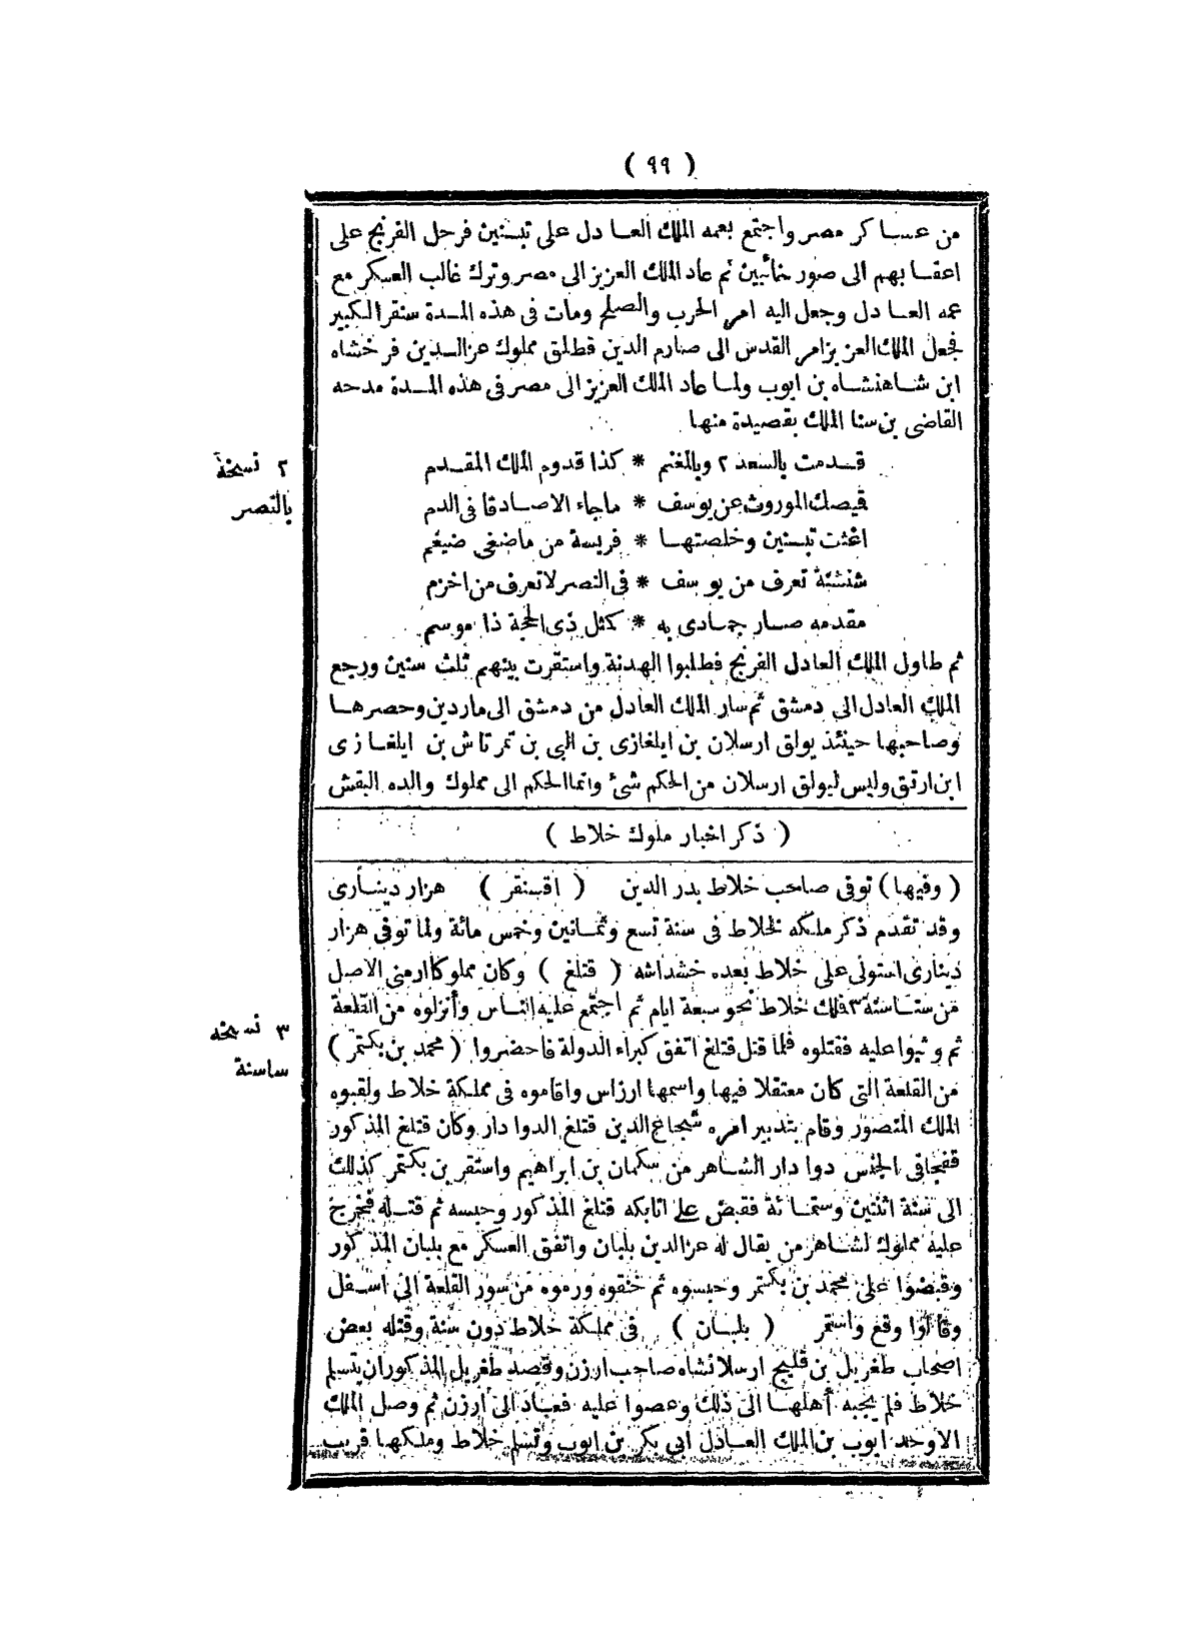 ( ٩٩ )
من عساكر مصر واجتمع بعمه الملك العادل على تبنين فرحل الفرنج على
اعقابهم الى صور خائبين ثم عاد الملك العزيز الى مصر وترك غالب العسكر مع
عمه العادل وجعل اليه امر الحرب والصلح ومات فى هذه المدة سنقر الكبير
فجعل الملك العزيز امر القدس الى صارم الدين قطلق مملوك عز الدين فرخشاه
ابن شاهنشاه بن ايوب ولما عاد الملك العزيز الى مصر فى هذه المدة مدحه
القاضى بن سنا الملك بقصيدة منها
قدمت بالسعد ٢ وبالمغنم * كذا قدوم الملك المقدم
٢ نسخة
قيصك الموروث عن يوسف * ماجاء الاصادقا فى الدم
بالنصر
اغثت تبنين وخلصتها * فريسة من ماضغى ضيغم
شنشنة تعرف من يوسف * فى النصر لا تعرف من اخزم
مقدمه صار جمادى به * كمثل ذى الحجة ذا موسم
ثم طاول الملك العادل الفرنج فطلبوا الهدنة واستقرت بينهم ثلث سنين ورجع
الملك العادل الى دمشق ثم سار الملك العادل من دمشق الى ماردين وحصرها
وصاحبها حينئذ يولق ارسلان بن ايلغازى بن البى بن تمرتاش بن ايلغازى
ابن ارتق وليس ليولق ارسلان من الحكم شئ وانما الحكم الى مملوك والده البقش
( ذكر اخبار ملوك خلاط )
( وفيها ) توفى صاحب خلاط بدر الدين ( اقسنقر ) هزار دينارى
وقد تقدم ذكر ملكه لخلاط فى سنة تسع وثمانين وخمس مائة ولما توفى هزار
دينارى استولى على خلاط بعده خشداشه ( قتلغ ) وكان مملوكا ارمنى الاصل
من سناسنة ٣ فلك خلاط نحو سبعة ايام ثم اجتمع عليه الناس وأنزلوه من القلعة
٣ نسخه
ثم وثبوا عليه فقتلوه فلما قتل قتلغ اتفق كبراء الدولة فاحضروا ( محمد بن بكتمر )
ساسنة
من القلعة التى كان معتقلا فيها واسمها ارزاس واقاموه فى مملكة خلاط ولقبوه
الملك المنصور وقام بتدبير امره شجاع الدين قتلغ الدوادار وكان قتلغ المذكور
قفجاقى الجنس دوادار الشاهرمن سكمان بن ابراهيم واستقر بن بكتمر كذلك
الى سنة اثنتين وستمائة فقبض على اتابكه قتلغ المذكور وحبسه ثم قتله فخرج
عليه مملوك لشاهرمن يقال له عز الدين بلبان واتفق العسكر مع بلبان المذكور
وقبضوا على محمد بن بكتمر وحبسوه ثم خنقوه ورموه من سور القلعة الى اسفل
وقالوا وقع واستمر ( بلبان ) فى مملكة خلاط دون سنة وقتله بعض
اصحاب طغريل بن قليج ارسلانشاه صاحب ارزن وقصد طغريل المذكور ان يتسلم
خلاط فلم يجبه أهلها الى ذلك وعصوا عليه فعاد الى ارزن ثم وصل الملك
الاوحد ايوب بن الملك العادل ابى بكر بن ايوب وتسلم خلاط وملكها قريب